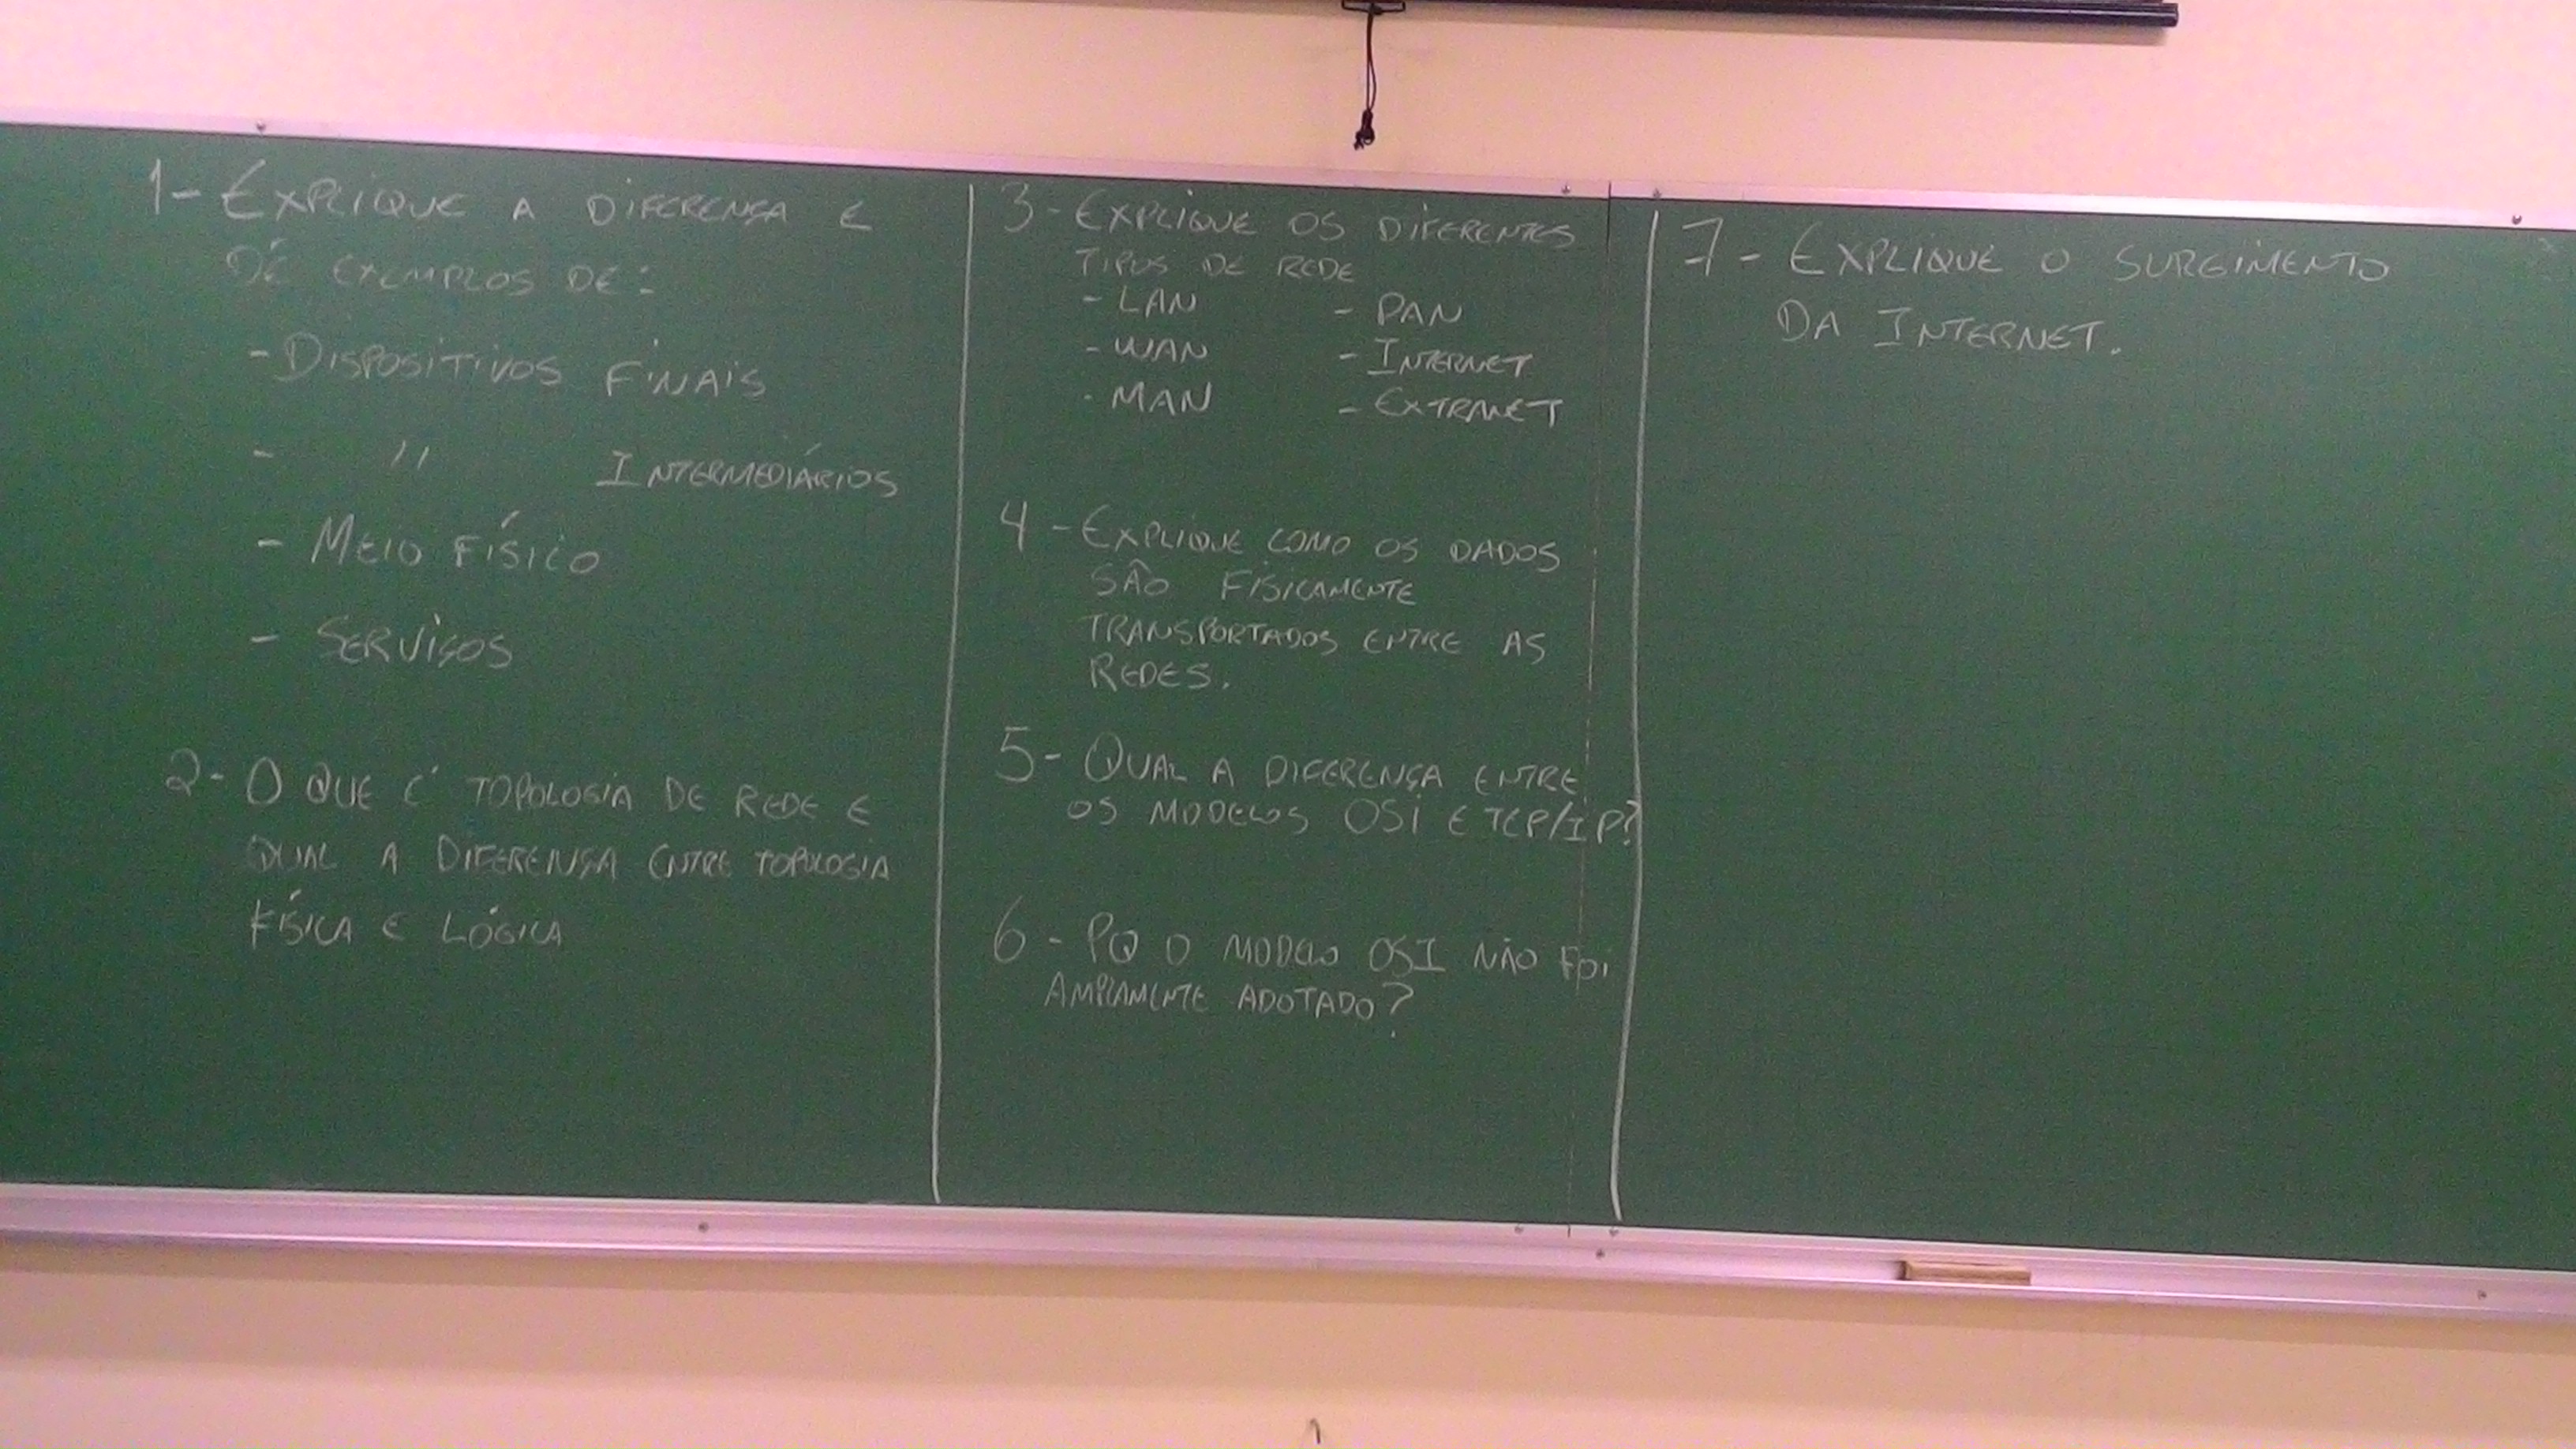 1- EXPLIQUE A DIFERENÇA E
DÊ EXEMPLOS DE:
- DISPOSITIVOS FINAIS
- " INTERMEDIÁRIOS
- MEIO FÍSICO
- SERVIÇOS
2- O QUE É TOPOLOGIA DE REDE E
QUAL A DIFERENÇA ENTRE TOPOLOGIA
FÍSICA E LÓGICA
3- EXPLIQUE OS DIFERENTES
TIPOS DE REDE
- LAN - PAN
- WAN - INTERNET
- MAN - EXTRANET
4- EXPLIQUE COMO OS DADOS
SÃO FISICAMENTE
TRANSPORTADOS ENTRE AS
REDES.
5- QUAL A DIFERENÇA ENTRE
OS MODELOS OSI E TCP/IP?
6- PQ O MODELO OSI NÃO FOI
AMPLAMENTE ADOTADO?
7- EXPLIQUE O SURGIMENTO
DA INTERNET.